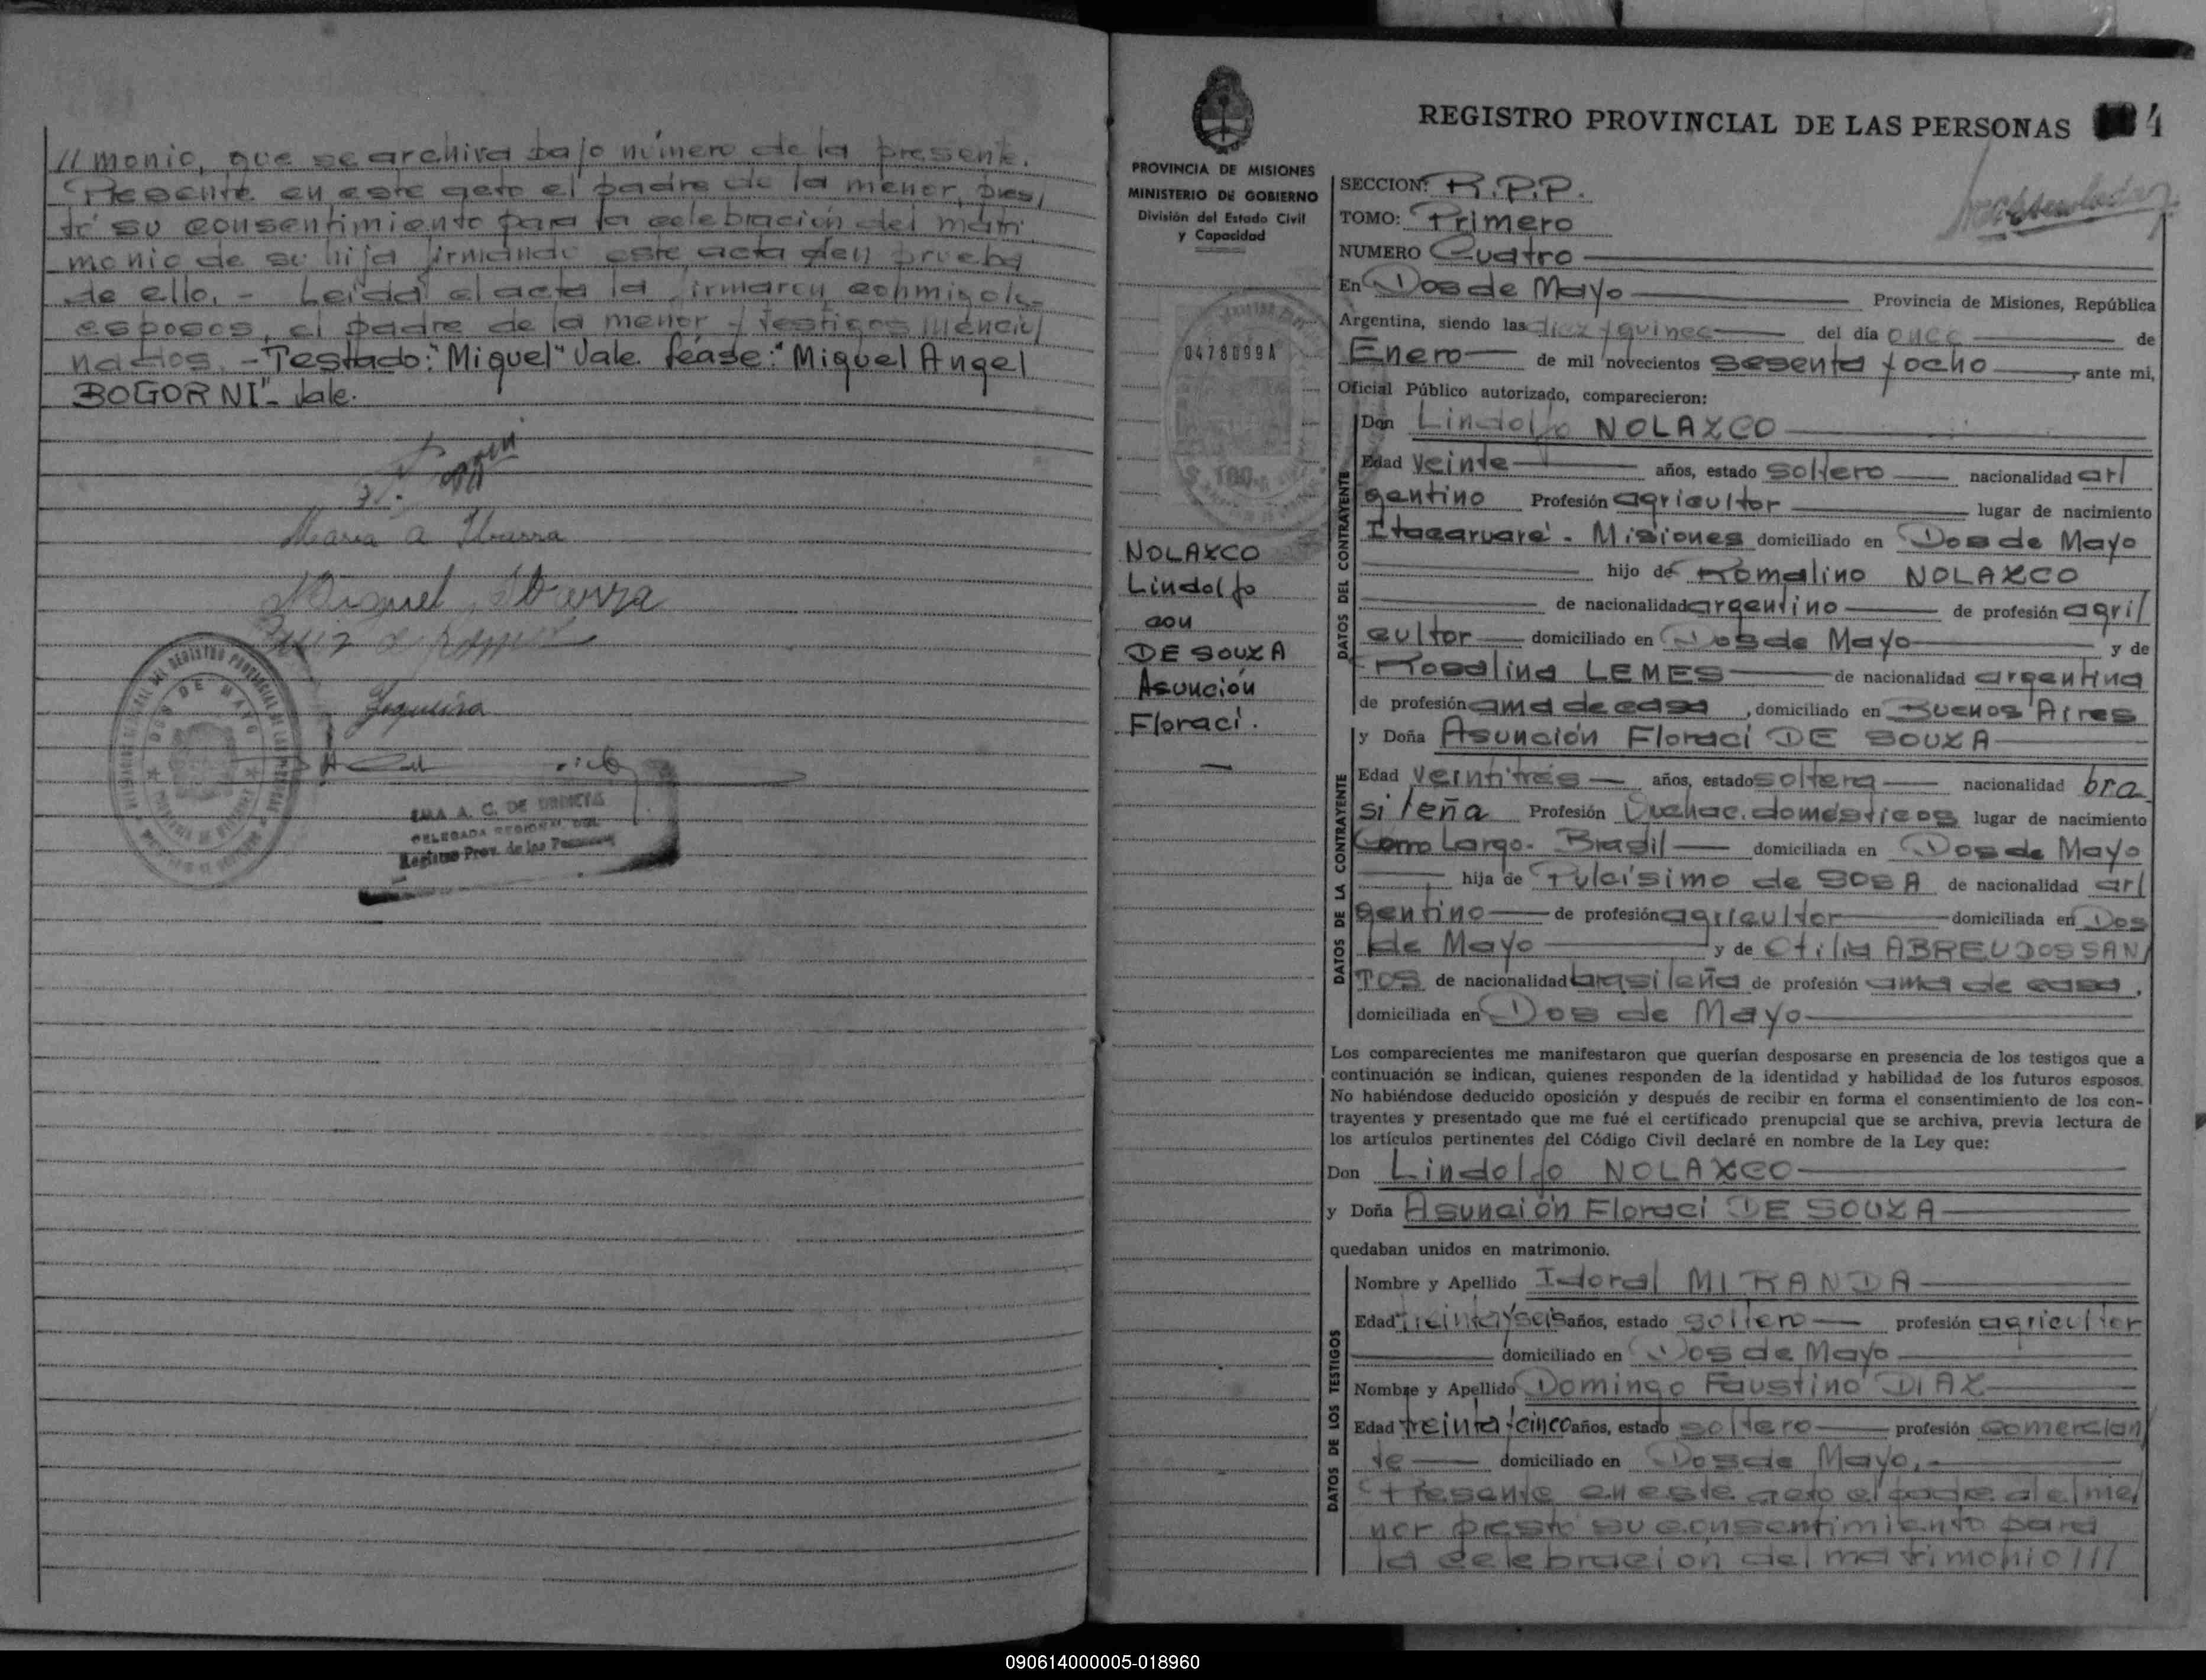 // monio, que se archiva bajo número de la presente.
Presente en este acto el padre de la menor, pres/
tó su consentimiento para la celebración del matri
monio de su hija firmando este acta en prueba
de ello. - Leída el acta la firmaron conmigo los
esposos, el padre de la menor y testigos mencio/
nados. - Testado: "Miguel" Vale. Léase: "Miguel Angel
BOGORNI" - Vale.
Maria A Ibarra
Miguel Ibarra
Sequeira
DOS DE MAYO
DELEGADA REGIONAL DEL
Registro Prov. de las Personas
PROVINCIA DE MISIONES
MINISTERIO DE GOBIERNO
División del Estado Civil
y Capacidad
0478099A
NOLAZCO
Lindolfo
con
DE SOUZA
Asunción
Floraci.
REGISTRO PROVINCIAL DE LAS PERSONAS 4
SECCION: R.P.P.
TOMO: Primero
NUMERO Cuatro
En Dos de Mayo Provincia de Misiones, República
Argentina, siendo las diez y quince del día once de
Enero de mil novecientos sesenta y ocho, ante mi,
Oficial Público autorizado, comparecieron:
DATOS DEL CONTRAYENTE
Don Lindolfo NOLAZCO
Edad veinte años, estado soltero nacionalidad ar/
gentino Profesión agricultor lugar de nacimiento
Itacaruaré - Misiones domiciliado en Dos de Mayo
hijo de Romalino NOLAZCO
de nacionalidad argentino de profesión agri/
cultor domiciliado en Dos de Mayo y de
Rosalina LEMES de nacionalidad argentina
de profesión ama de casa, domiciliado en Buenos Aires
DATOS DE LA CONTRAYENTE
y Doña Asunción Floraci DE SOUZA
Edad veintitrés años, estado soltera nacionalidad bra
sileña Profesión Quehac. domésticos lugar de nacimiento
Cerro Largo - Brasil domiciliada en Dos de Mayo
hija de Pulcisimo de SOSA de nacionalidad ar/
gentino de profesión agricultor domiciliada en Dos
de Mayo y de Otilia ABREU DOS SAN/
TOS de nacionalidad brasileña de profesión ama de casa,
domiciliada en Dos de Mayo
Los comparecientes me manifestaron que querían desposarse en presencia de los testigos que a
continuación se indican, quienes responden de la identidad y habilidad de los futuros esposos.
No habiéndose deducido oposición y después de recibir en forma el consentimiento de los con-
trayentes y presentado que me fué el certificado prenupcial que se archiva, previa lectura de
los artículos pertinentes del Código Civil declaré en nombre de la Ley que:
Don Lindolfo NOLAZCO
y Doña Asunción Floraci DE SOUZA
quedaban unidos en matrimonio.
DATOS DE LOS TESTIGOS
Nombre y Apellido Idoral MIRANDA
Edad treinta y seis años, estado soltero profesión agricultor
domiciliado en Dos de Mayo
Nombre y Apellido Domingo Faustino DIAZ
Edad treinta y cinco años, estado soltero profesión comercian/
te domiciliado en Dos de Mayo.
Presente en este acto el padre del me/
nor prestó su consentimiento para
la celebración del matrimonio ///
090614000005-018960